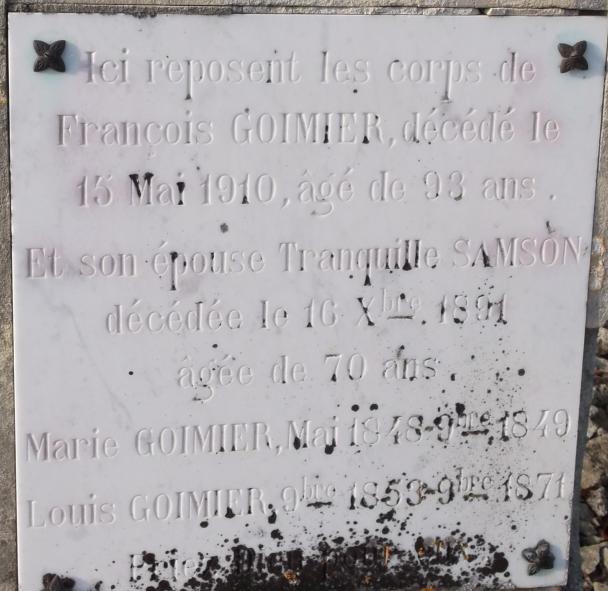 Ici reposent les corps de
François GOIMIER, décédé le
15 Mai 1910, âgé de 93 ans.
Et son épouse Tranquille SAMSON
décédée le 16 Xbre 1891
âgée de 70 ans.
Marie GOIMIER, Mai 1848-9bre 1849
Louis GOIMIER, 9bre 1853-9bre 1871
Priez Dieu pour eux